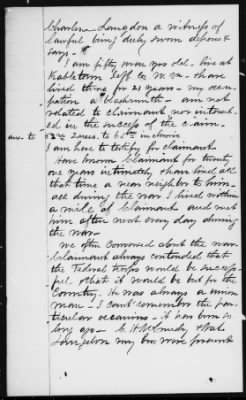 Charles Langdon a witness of
lawful being duly sworn deposes &
says - 
I am fifty years old. live at
Kabletown Jeff Co. W. Va. - have
lived there for 21 years - my occu-
pation a blacksmith - am not
related to claimant nor interest-
ed in the success of the claim.
ans. to 2nd Inters. to 60th inclusive
I am here to testify for claimant
Have known claimant for twenty
one years intimately, have lived all
that time a near neighbor to him -
all during the war I lived within
a mile of claimant and met
him often most every day during
the war -
We often conversed about the war
Claimant always contended that
the Federal troops would be success-
ful & that it would be best for the
Country. He was always a union
man - I can't remember the par-
ticular occasions - it has been so
long ago -
Langdon may have been present